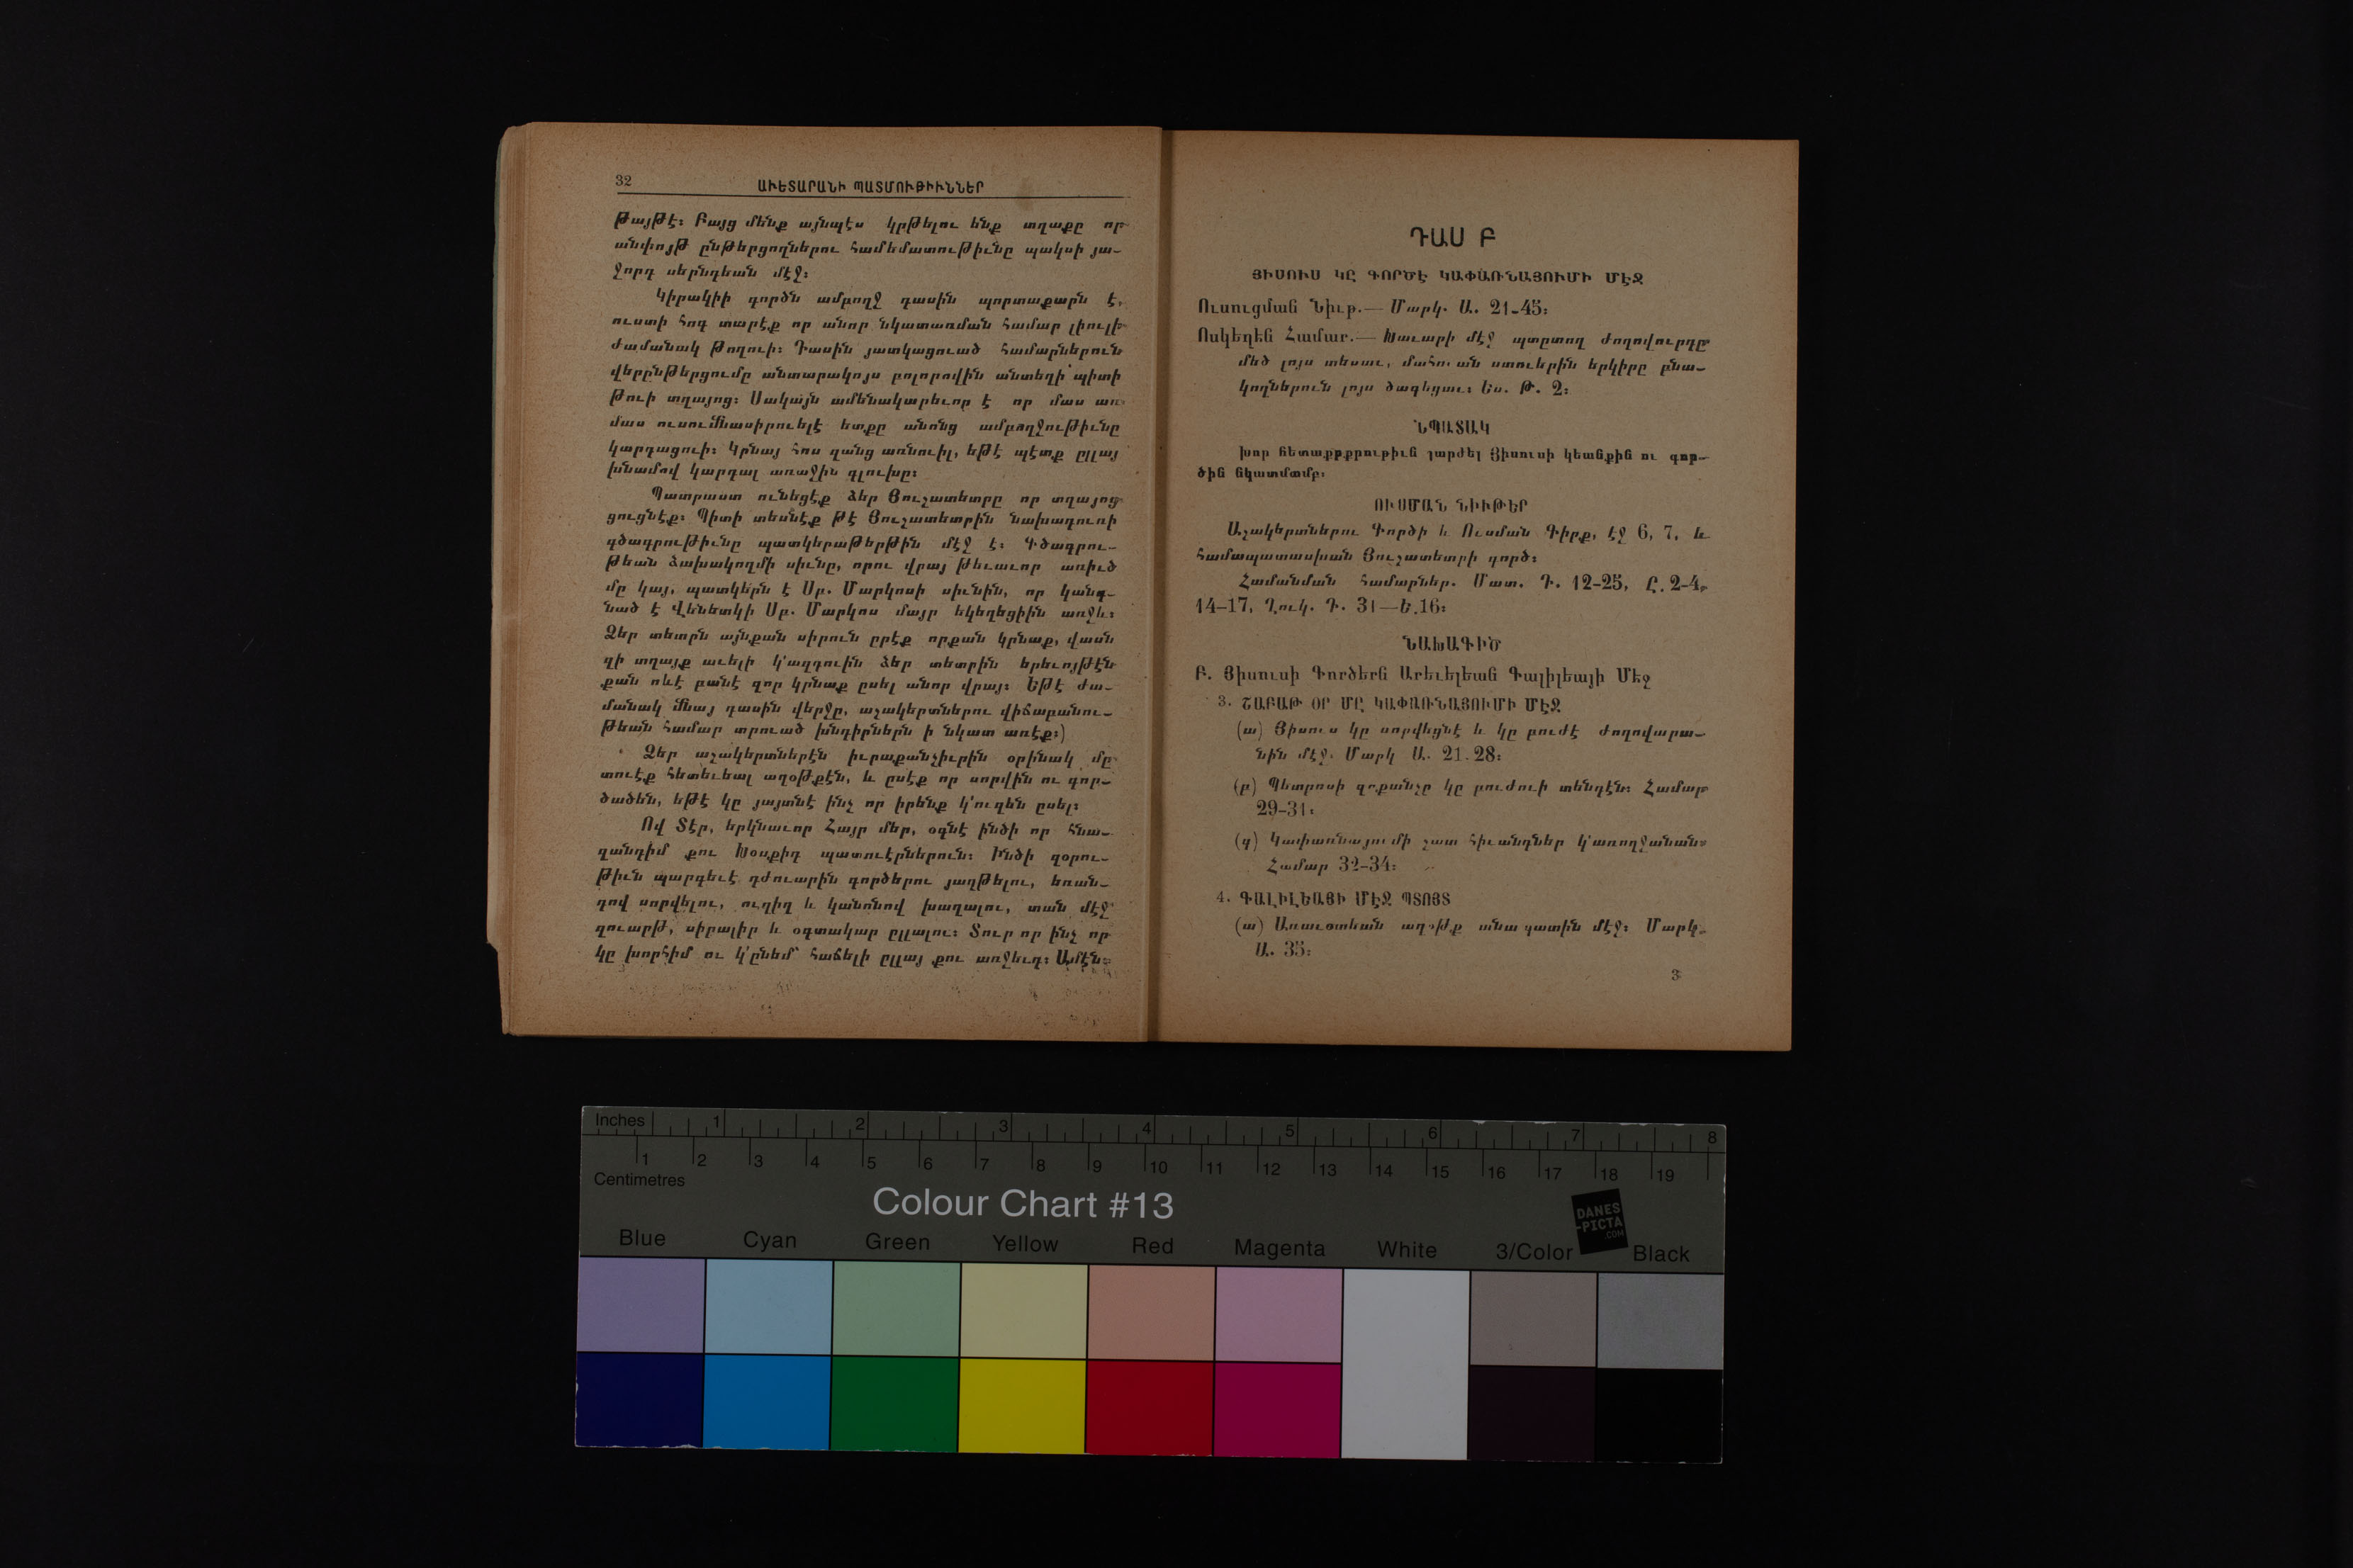 32
ԱՒԵՏԱՐԱՆԻ ՊԱՏՄՈՒԹԻՒՆՆԵՐ
թայթէ։ Բայց մենք այնպէս կրթելու ենք տղաքը որ
անփոյթ ընթերցողներու համեմատութիւնը պակսի յա-
ջորդ սերնդեան մէջ։
Կիրակիի գործն ամբողջ դասին պորտաքարն է,
ուստի հոգ տարէք որ անոր նկատառման համար լիուլի
ժամանակ թողուի։ Դասին յատկացուած համարներուն
վերընթերցումը անտարակոյս բոլորովին անտեղի պիտի
թուի տղայոց։ Սակայն ամենակարեւոր է որ մաս առ
մաս ուսումնասիրուելէ ետքը անոնց ամբողջութիւնը
կարդացուի։ Կրնայ հոս զանց առնուիլ, եթէ պէտք ըլլայ
խնամով կարդալ առաջին գլուխը։
Պատրաստ ունեցէք ձեր Ցուցատետրը որ տղայոց
ցուցնէք։ Պիտի տեսնէք թէ Ցուցատետրին նախադուռի
գծագրութիւնը պատկերաթերթին մէջ է։ Գծագրու-
թեան ձախակողմի սիւնը, որու վրայ թեւաւոր առիւծ
մը կայ, պատկերն է Սբ. Մարկոսի սիւնին, որ կանգ-
նած է Վենետկի Սբ. Մարկոս մայր եկեղեցիին առջև։
Ձեր տետրն այնքան սիրուն ըրէք որքան կրնաք, վասն
զի տղայք աւելի կ՚ազդուին ձեր տետրին երեւոյթէն
քան ոևէ բանէ զոր կրնաք ըսել անոր վրայ։ Եթէ ժա-
մանակ մնայ դասին վերջը, աշակերտներու վիճաբանու-
թեան համար տրուած խնդիրներն ի նկատ առէք։)
Ձեր աշակերտներէն իւրաքանչիւրին օրինակ մը
տուէք հետեւեալ աղօթքէն, և ըսէք որ սորվին ու գոր-
ծածեն, եթէ կը յայտնէ ինչ որ իրենք կ՚ուզեն ըսել։
Ով Տէր, երկնաւոր Հայր մեր, օգնէ ինծի որ հնա-
զանդիմ քու Խօսքիդ պատուէրներուն։ Ինծի զօրու-
թիւն պարգեւէ դժուարին գործերու յաղթելու, եռան-
դով սորվելու, ուղիղ և կանոնով խաղալու, տան մէջ
զուարթ, սիրալիր և օգտակար ըլլալու։ Տուր որ ինչ որ
կը խորհիմ ու կ՚ընեմ՝ հաճելի ըլլայ քու առջեւդ։ Ամէն։
ԴԱՍ Բ
ՅԻՍՈՒՍ ԿԸ ԳՈՐԾԷ ԿԱՓԱՌՆԱՅՈՒՄԻ ՄԷՋ
Ուսուցման Նիւթ.— Մարկ. Ա. 21-45։
Ոսկեղէն Համար.— Խաւարի մէջ պտըտող ժողովուրդը
մեծ լոյս տեսաւ, մահուան ստուերին երկիրը բնա-
կողներուն լոյս ծագեցաւ։ Ես. Թ. 2։
ՆՊԱՏԱԿ
Խոր հետաքրքրութիւն շարժել Յիսուսի կեանքին ու գոր-
ծին նկատմամբ։
ՈՒՍՄԱՆ ՆԻՒԹԵՐ
Աշակերտներու Գործի և Ուսման Գիրք, էջ 6, 7, և
համապատասխան Ցուցատետրի գործ։
Համանման համարներ. Մատ. Դ. 12-25, Ը. 2-4,
14-17, Ղուկ. Դ. 31—Ե. 16։
ՆԱԽԱԳԻԾ
Բ. Յիսուսի Գործերն Արեւելեան Գալիլեայի Մէջ
3. ՇԱԲԱԹ ՕՐ ՄԸ ԿԱՓԱՌՆԱՅՈՒՄԻ ՄԷՋ
(ա) Յիսուս կը սորվեցնէ և կը բուժէ ժողովարա-
նին մէջ. Մարկ Ա. 21-28։
(բ) Պետրոսի զոքանչը կը բուժուի տենդէն։ Համար
29-31։
(գ) Կափառնայումի շատ հիւանդներ կ՚առողջանան։
Համար 32-34։
4. ԳԱԼԻԼԵԱՅԻ ՄԷՋ ՊՏՈՅՏ
(ա) Առաւօտեան աղօթք անապատին մէջ։ Մարկ.
Ա. 35։
3
Inches 1 2 3 4 5 6 7 8
1 2 3 4 5 6 7 8 9 10 11 12 13 14 15 16 17 18 19
Centimetres
Colour Chart #13
DANES
-PICTA
.COM
Blue Cyan Green Yellow Red Magenta White 3/Color Black